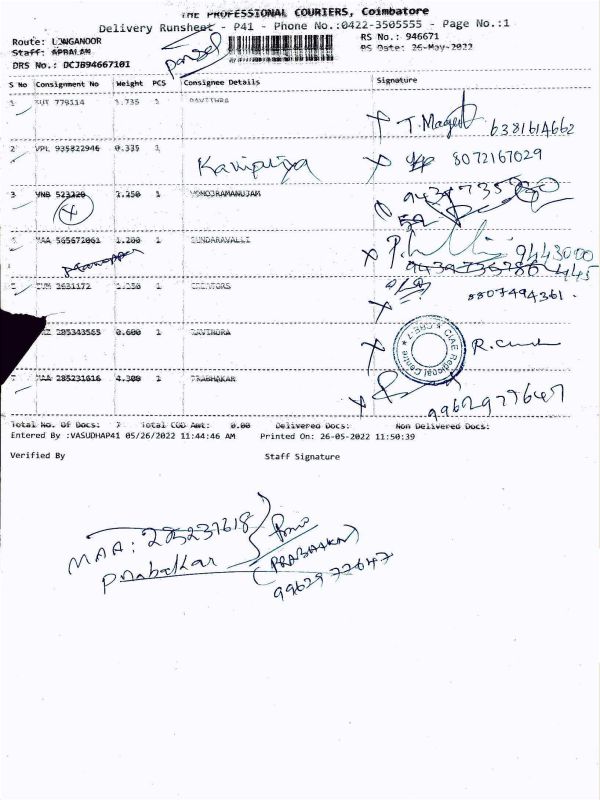 THE PROFESSIONAL COURIERS, Coimbatore
Delivery Runsheet - P41 - Phone No.:0422-3505555 - Page No.:1
Route: LINGANOOR
RS No.: 946671
Staff:
RS Date: 26-May-2022
DRS No.: DCJB94667101
S No Consignment No Weight PCS Consignee Details Signature
1 779114 1.735 1 PAVITHRA
T. Magesh 6381614662
2 VPL 935822946 0.335 1
Kavipriya 8072167029
3 VNB 523220 1.250 1 MONOJRAMANUJAM
4 MAA 565672061 1.200 1 SUNDARAVALLI
9443000
445
2631172 1.150 1 CREATORS
8807494361.
285343565 0.600 1 RAVINDRA
CIAE Regional Centre CBE-7
7 MAA 285231616 4.300 1 PRABHAKAR
9962977647
Total No. Of Docs: 7 Total COD Amt: 0.00 Delivered Docs: Non Delivered Docs:
Entered By :VASUDHAP41 05/26/2022 11:44:46 AM Printed On: 26-05-2022 11:50:39
Verified By Staff Signature
MAA: 285231618
Prabakar
(PRABHAKAR)
9962977647